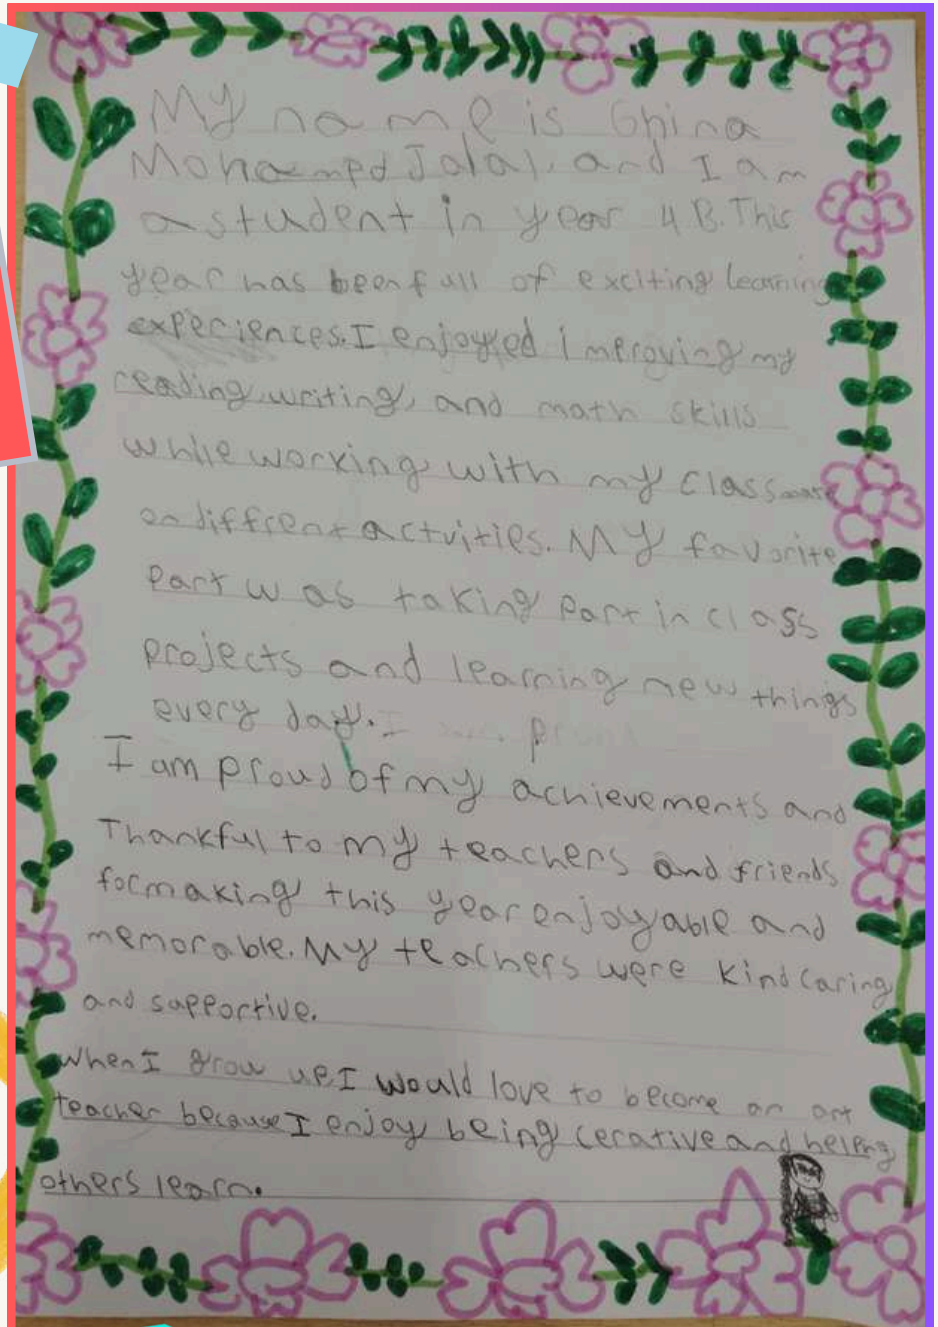 My name is Ghina
Mohaemed Jalal, and I am
a student in year 4B. This
year has been full of exciting learning
experiences. I enjoyed improving my
reading, writing, and math skills
while working with my classmate
on diffrent actvities. My favorite
part was taking part in class
projects and learning new things
every day.
I am proud of my achievements and
Thankful to my teachers and friends
for making this year enjoyable and
memorable. My teachers were kind caring
and supportive.
When I grow up, I would love to become an art
teacher because I enjoy being cerative and helping
others learn.